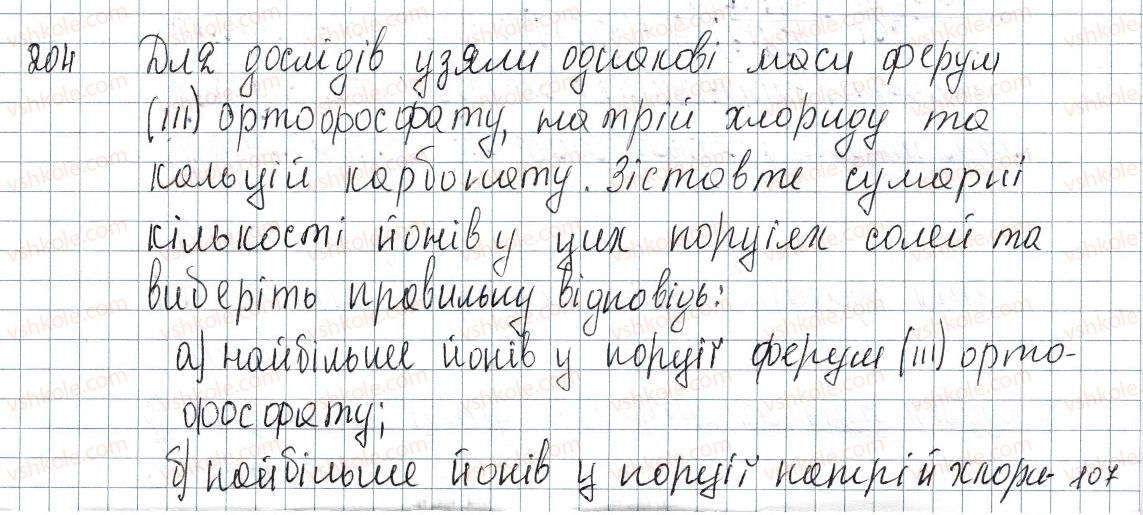 204 Для дослідів узяли однакові маси ферум
(III) ортофосфату, натрій хлориду та
кальцій карбонату. Зіставте сумарні
кількості йонів у цих порціях солей та
виберіть правильну відповідь:
а) найбільше йонів у порції ферум (III) орто-
фосфату;
б) найбільше йонів у порції натрій хлори- 107
vshkole.com